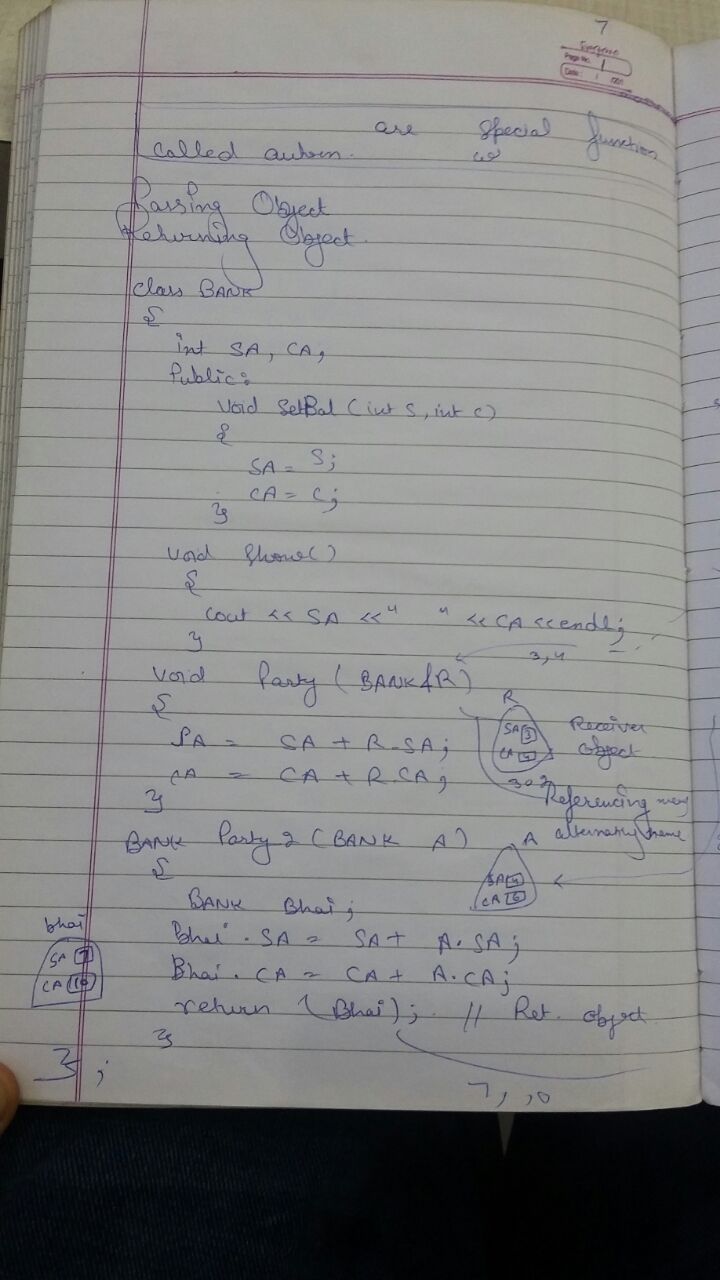 7
Page No. 1
Date: / /201
are special function
called autom.
Passing Object
Returning Object.
class BANK
{
int SA, CA,
Public:
void SetBal (int S, int C)
{
SA = S;
CA = C;
}
void Show()
{
cout << SA <<" " << CA <<endl;
}
3,4
void Party (BANK &R)
{
R
SA 3
CA 4
Receiver
object
SA = SA + R.SA;
CA = CA + R.CA;
}
Referencing
alternative name
BANK Party 2 (BANK A)
A
{
SA 4
CA 6
BANK Bhai;
bhai
SA 7
CA 10
Bhai.SA = SA + A.SA;
Bhai.CA = CA + A.CA;
return (Bhai); // Ret. object
}
};
7, 10